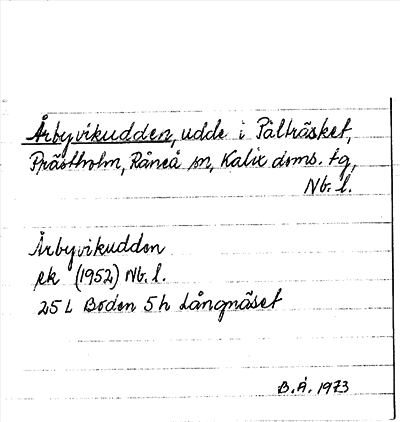 Årbyvikudden, udde i Pålträsket,
Prästholm, Råneå sn, Kalix doms. tg,
Nb. l.
Årbyvikudden
ek (1952) Nb. l.
25 L Boden 5 h Långnäset
B.Å. 1973